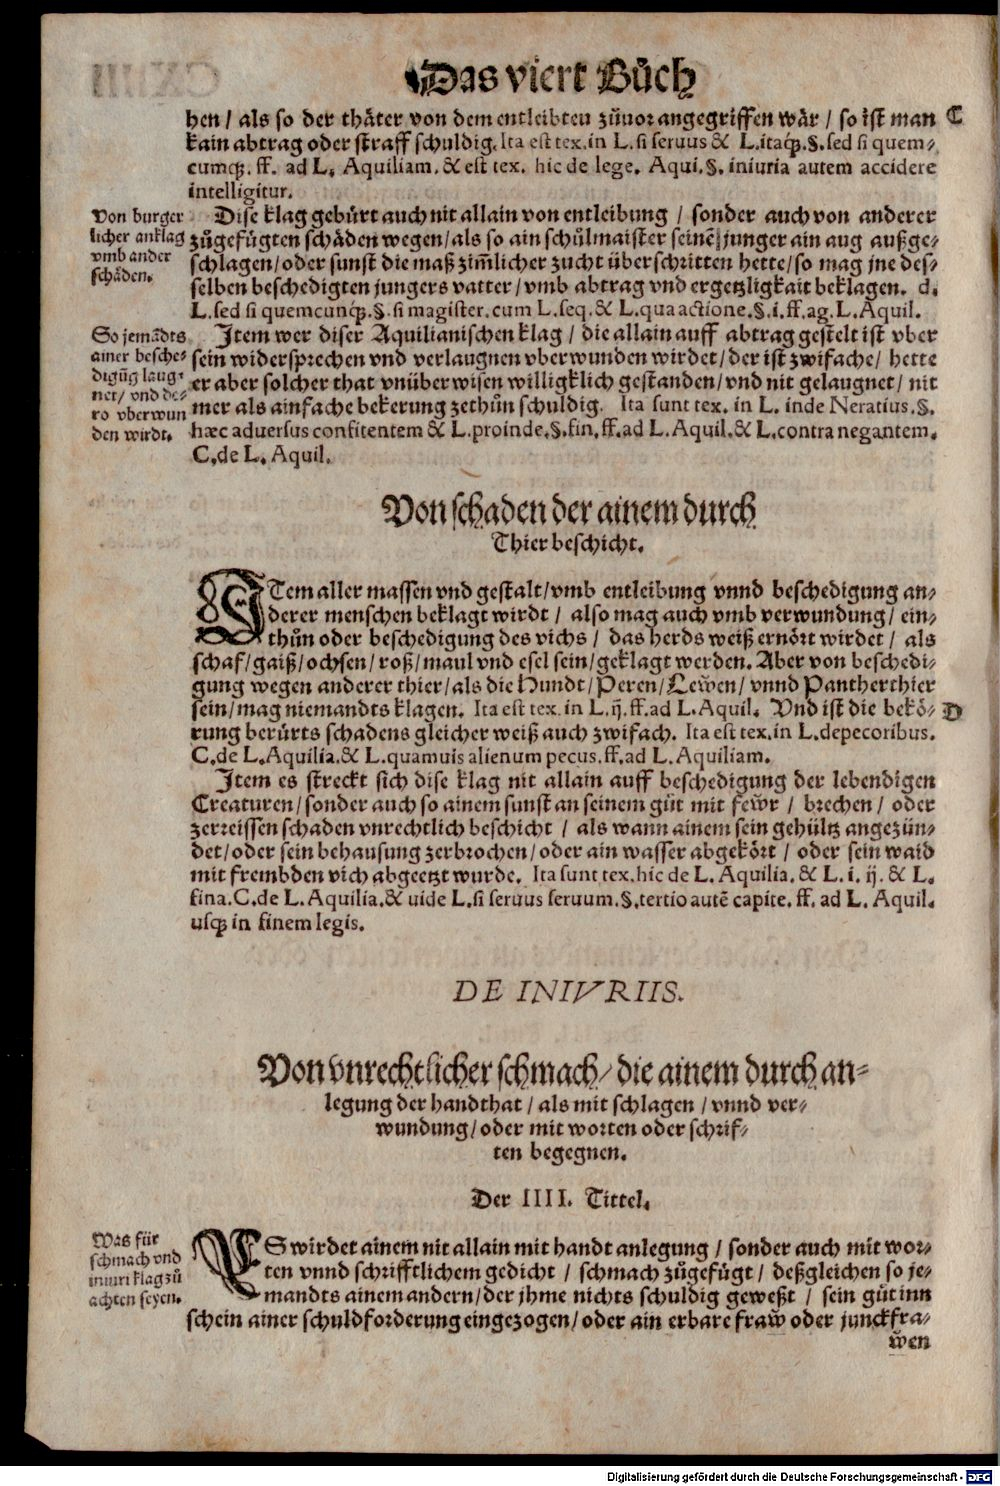 Das viert Bůch
hen / als so der thäter von dem entleibten zůuor angegriffen wär / so ist man C
kain abtrag oder straff schuldig. Ita est tex. in L. si seruus & L. itaq́;. §. sed si quem-
cumq;. ff. ad L. Aquiliam. & est tex. hic de lege. Aqui. §. iniuria autem accidere
intelligitur.
Von burger
licher anklag
vmb ander
schäden.
Dise klag gebürt auch nit allain von entleibung / sonder auch von anderer
zůgefügten schäden wegen / als so ain schůlmaister seinē junger ain aug außge-
schlagen / oder sunst die maß zim̃licher zucht überschritten hette / so mag jne des-
selben beschedigten jungers vatter / vmb abtrag vnd ergetzligkait beklagen. d.
L. sed si quemcunq;. §. si magister. cum L. seq. & L. qua actione. §. i. ff. ag. L. Aquil.
So jemādts
ainer besche-
digūg laug-
net / vnd de-
ro vberwun
den wirdt.
Item wer diser Aquilianischen klag / die allain auff abtrag gestelt ist vber
sein widersprechen vnd verlaugnen vberwunden wirdet / der ist zwifache / hette
er aber solcher that vnüberwisen willigklich gestanden / vnd nit gelaugnet / nit
mer als ainfache bekerung zethůn schuldig. Ita sunt tex. in L. inde Neratius. §.
hæc adversus confitentem & L. proinde. §. fin. ff. ad L. Aquil. & L. contra negantem.
C. de L. Aquil.
Von schaden der ainem durch
Thier beschicht.
ITem aller massen vnd gestalt / vmb entleibung vnnd beschedigung an-
derer menschen beklagt wirdt / also mag auch vmb verwundung / ein-
thůn oder beschedigung des vichs / das herds weiß ernört wirdet / als
schaf / gaiß / ochsen / roß / maul vnd esel sein / geklagt werden. Aber von beschedi-
gung wegen anderer thier / als die Hundt / Peren / Lewen / vnnd Pantherthier
sein / mag niemandts klagen. Ita est tex. in L. ij. ff. ad L. Aquil. Vnd ist die bekö- D
rung berürts schadens gleicher weiß auch zwifach. Ita est tex. in L. de pecoribus.
C. de L. Aquilia. & L. quamuis alienum pecus. ff. ad L. Aquiliam.
Item es streckt sich dise klag nit allain auff beschedigung der lebendigen
Creaturen / sonder auch so ainem sunst an seinem gůt mit fewr / brechen / oder
zerreissen schaden vnrechtlich beschicht / als wann ainem sein gehültz angezün-
det / oder sein behausung zerbrochen / oder ain wasser abgekört / oder sein waid
mit frembden vich abgeetzt wurde. Ita sunt tex. hic de L. Aquilia. & L. i. ij. & L.
fina. C. de L. Aquilia. & uide L. si seruus seruum. §. tertio autē capite. ff. ad L. Aquil.
usq; in finem legis.
DE INIVRIIS.
Von vnrechtlicher schmach / die ainem durch an-
legung der handthat / als mit schlagen / vnnd ver-
wundung / oder mit worten oder schrif-
ten begegnen.
Der IIII. Tittel.
Was für
schmach vnd
iniuri klag zů
achten seyen.
ES wirdet ainem nit allain mit handt anlegung / sonder auch mit wor-
ten vnnd schrifftlichem gedicht / schmach zůgefügt / deßgleichen so je-
mandts ainem andern / der jhme nichts schuldig geweßt / sein gůt inn
schein ainer schuldforderung eingezogen / oder ain erbare fraw oder junckfra-
wen
Digitalisierung gefördert durch die Deutsche Forschungsgemeinschaft - DFG